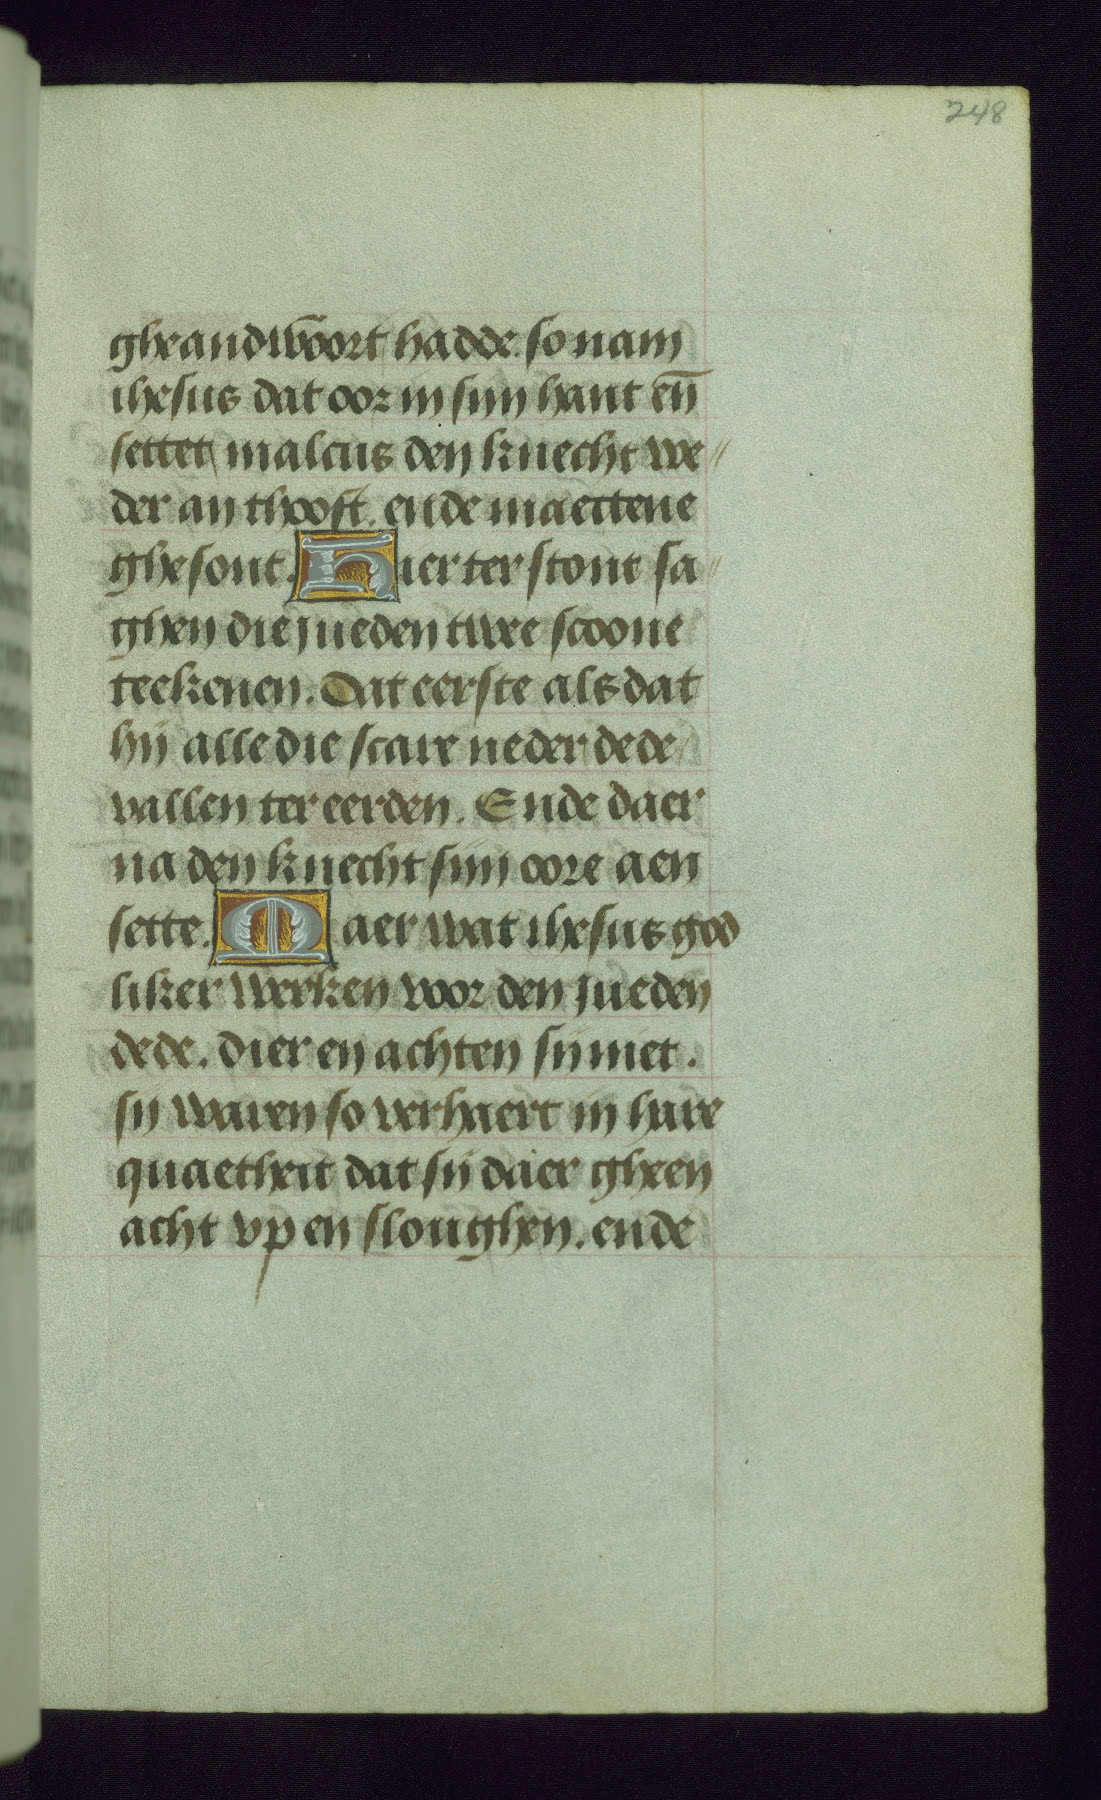 248
gheandwoort hadde. so nam
ihesus dat oor in sijn hant eñ
settet malcus den knecht we〃
der an thooft. ende maectene
ghesont. Hier ter stont sa〃
ghen die jueden twee scoone
teekenen. Dat eerste als dat
hij alle die scare neder dede
vallen ter eerden. Ende daer
na den knecht sijn oore aen
sette. Maer wat ihesus god
liker werken voor den jueden
dede. dier en achten sij niet.
sij waren so verhaert in hare
quaetheit dat sij daer gheen
acht vp en sloughen. ende